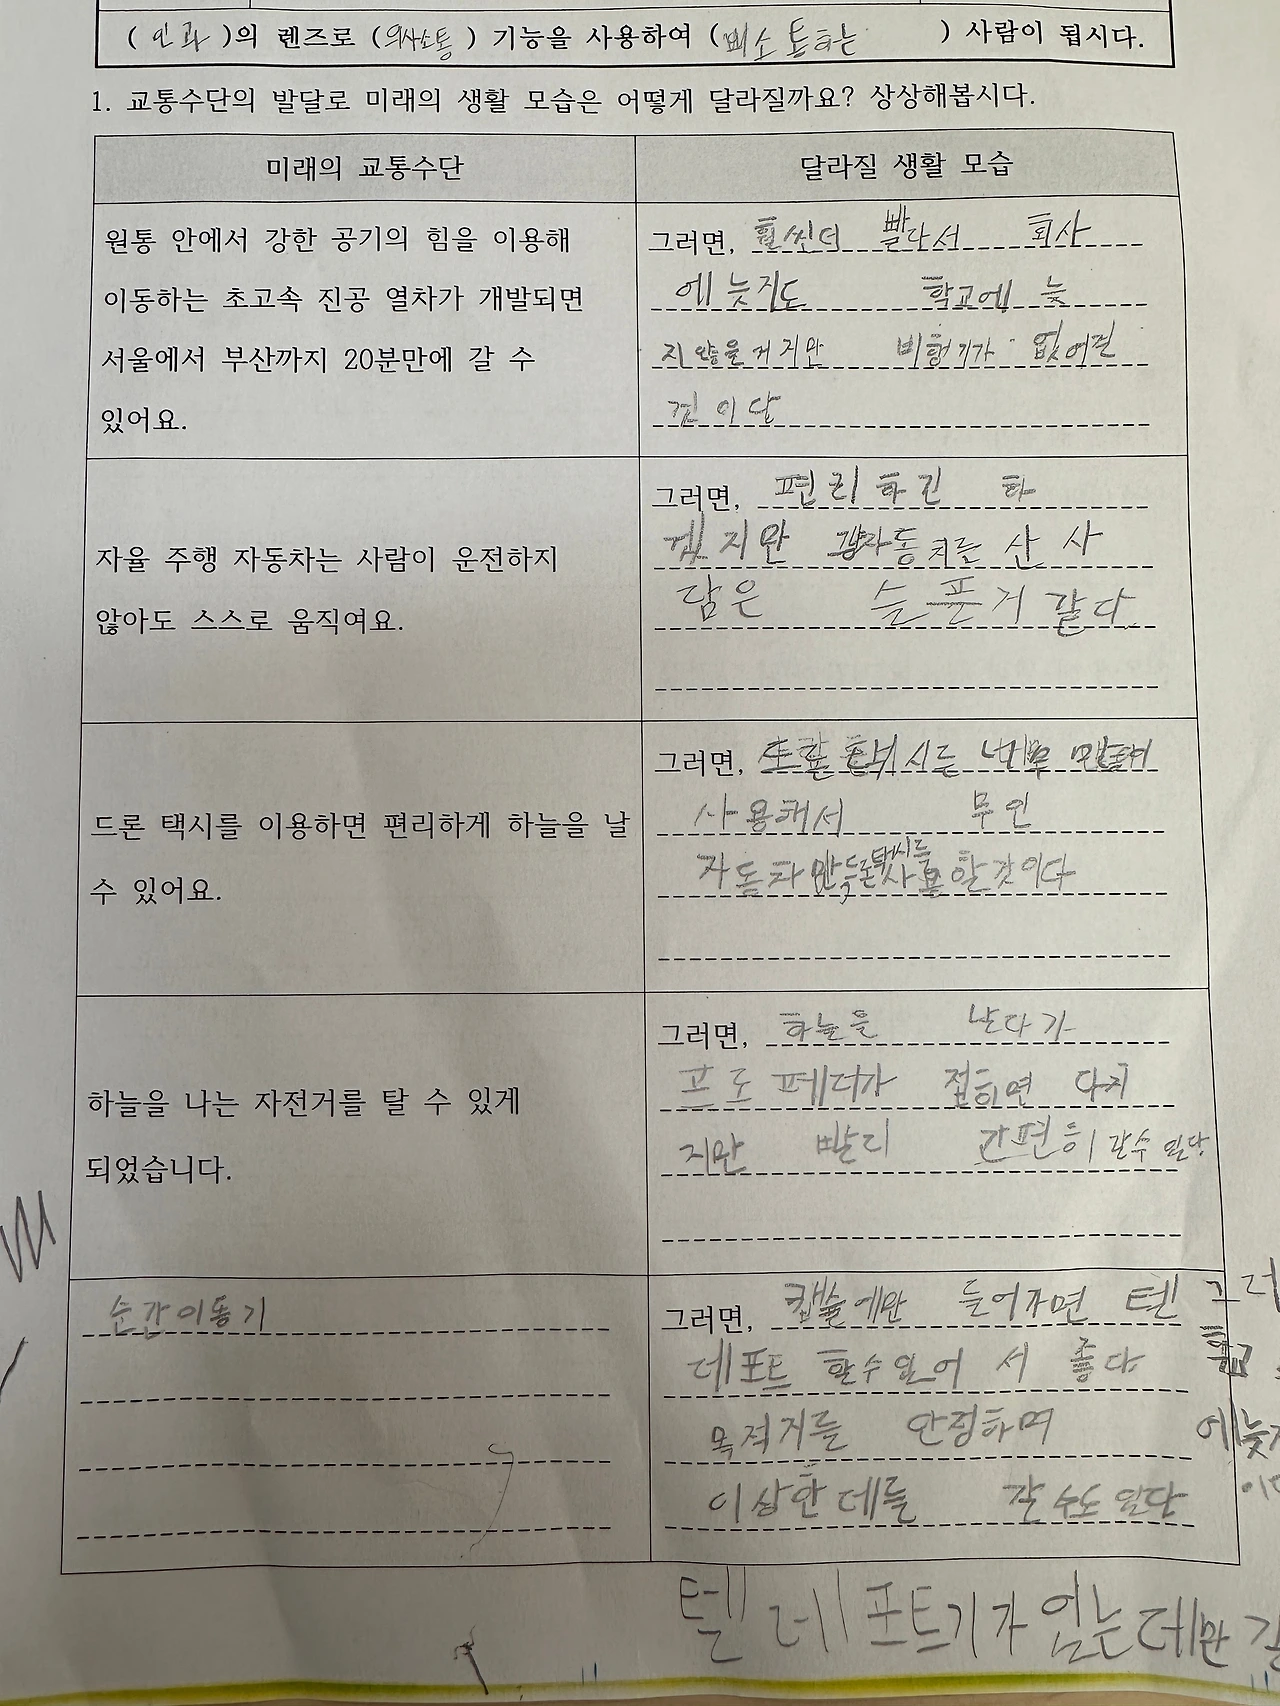 ( 인과 )의 렌즈로 (의사소통) 기능을 사용하여 (       ) 사람이 됩시다.
1. 교통수단의 발달로 미래의 생활 모습은 어떻게 달라질까요? 상상해봅시다.
미래의 교통수단
달라질 생활 모습
원통 안에서 강한 공기의 힘을 이용해
이동하는 초고속 진공 열차가 개발되면
서울에서 부산까지 20분만에 갈 수
있어요.
그러면, 훨씬더 빨라서 회사
에 늦지도 학교에 늦
지 않을거지만 비행기가 없어진
것이달
자율 주행 자동차는 사람이 운전하지
않아도 스스로 움직여요.
그러면, 편리하긴 하
겠지만 걍자동차를 산 사
람은 슬픈거 같다
드론 택시를 이용하면 편리하게 하늘을 날
수 있어요.
그러면, 너무 만들어
사용해서 무인
자동차만 드론택시를 사용할것이다
하늘을 나는 자전거를 탈 수 있게
되었습니다.
그러면, 하늘을 날다가
프로페더가 접히면 다치
지만 빨리 간편히 갈수 있당
순간이동기
그러면, 캡슐에만 들어가면 텔
레포트 할수있어서 좋다
목적지를 안정하며
이상한데를 갈수도 있단
그러
학교
에늦지
텔레포트기가 있는데만